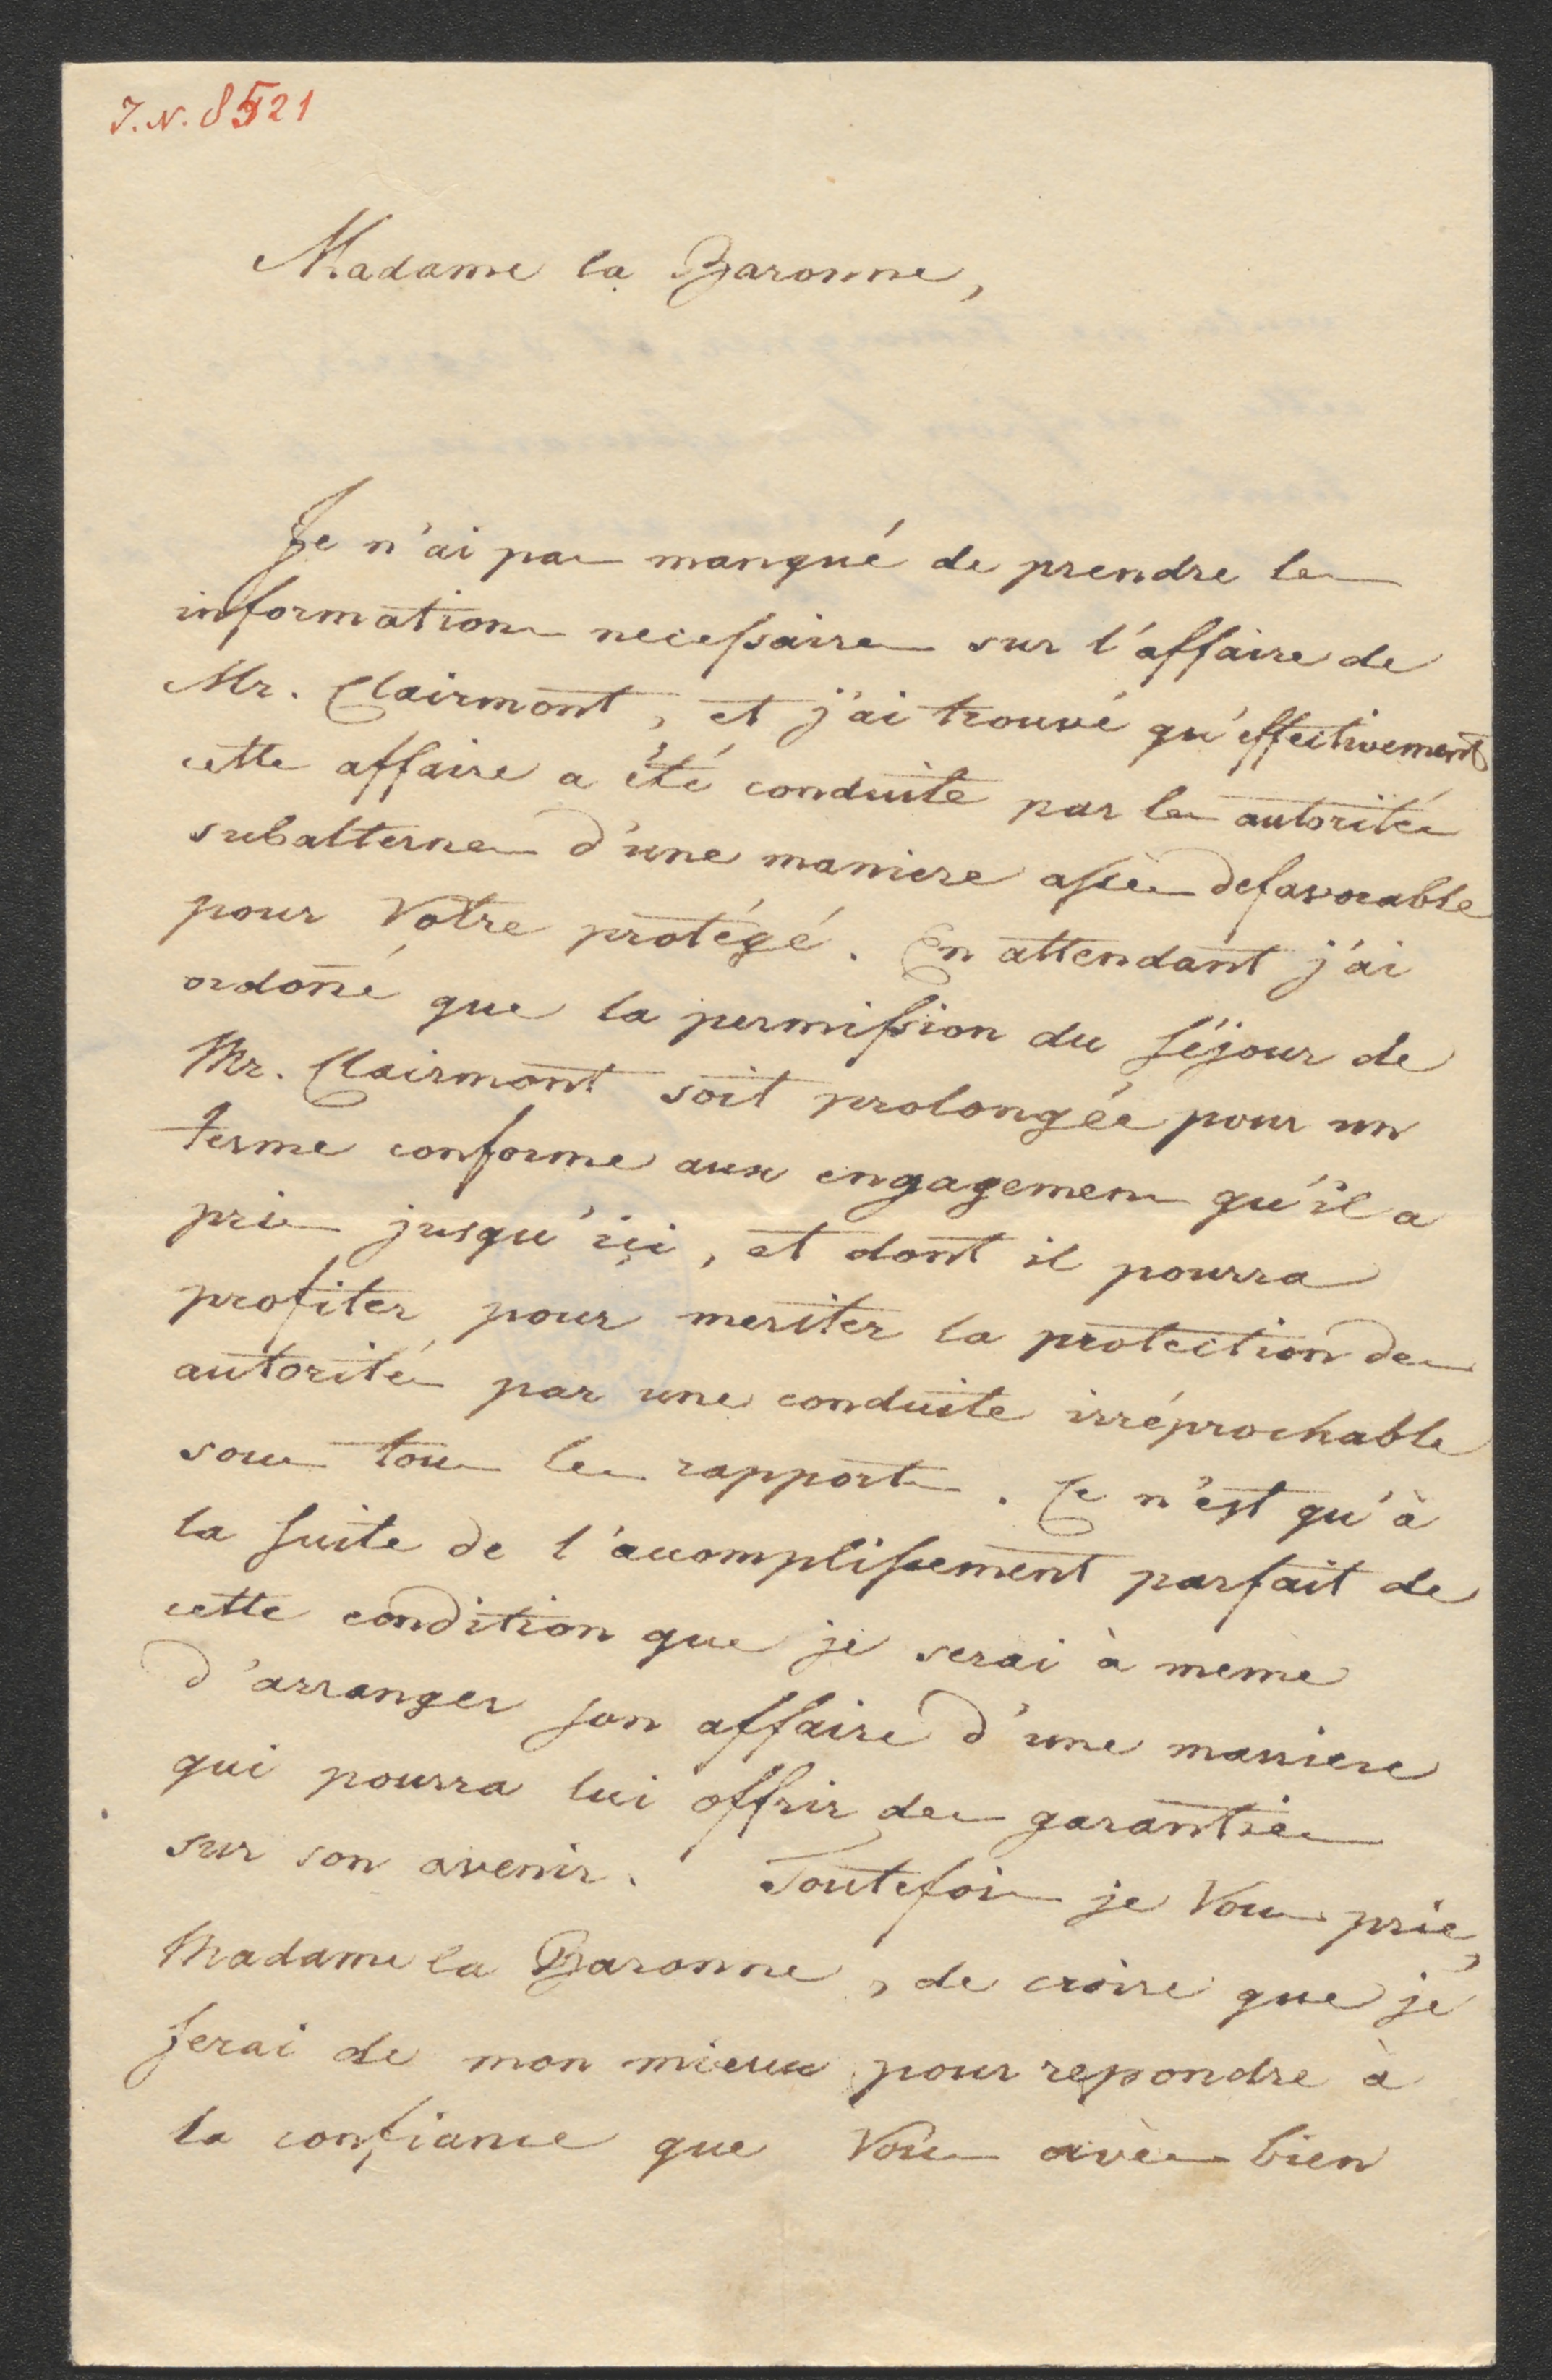 J.N. 8521
Madame la Baronne,
Je n'ai pas manqué de prendre les
informations necessaires sur l'affaire de
Mr. Clairmont, et j'ai trouvé qu'effectivement
cette affaire a été conduite par les autorités
subalternes d'une maniere assès defavorable
pour Votre protégé. En attendant j'ai
ordoné que la permission du séjour de
Mr. Clairmont soit prolongée pour un
terme conforme aux engagemens qu'il a
pris jusqu'ici, et dont il pourra
profiter pour meriter la protection des
autorités par une conduite irréprochable
sous tous les rapports. Ce n'est qu'à
la suite de l'accomplissement parfait de
cette condition que je serai à meme
d'arranger son affaire d'une maniere
qui pourra lui offrir des garanties
sur son avenir. Toutefois je Vous prie,
Madame la Baronne, de croire que je
ferai de mon mieux pour repondre à
la confiance que Vous avès bien